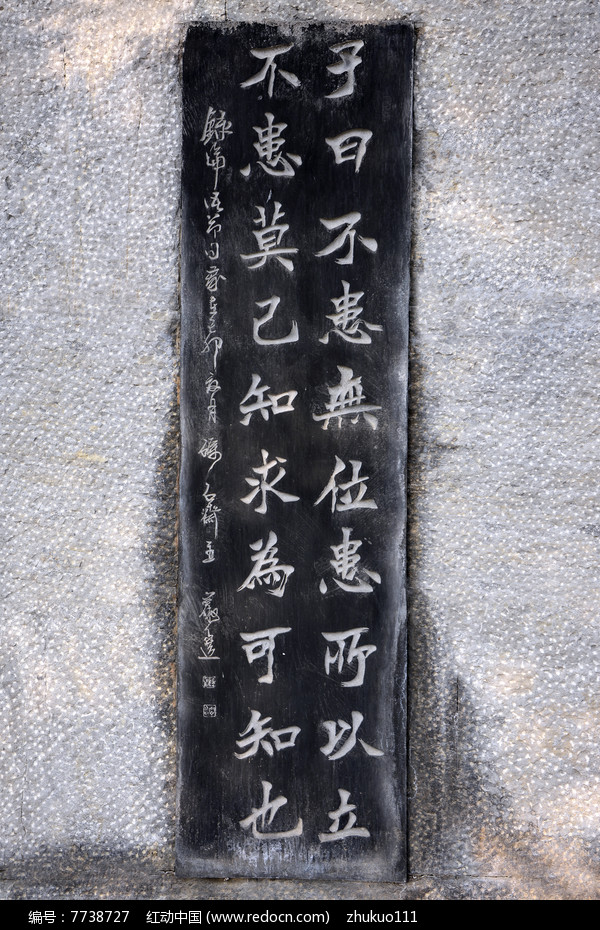 子曰不患無位患所以立
不患莫己知求為可知也
編号：7738727 红动中国 (www.redocn.com) zhukuo111